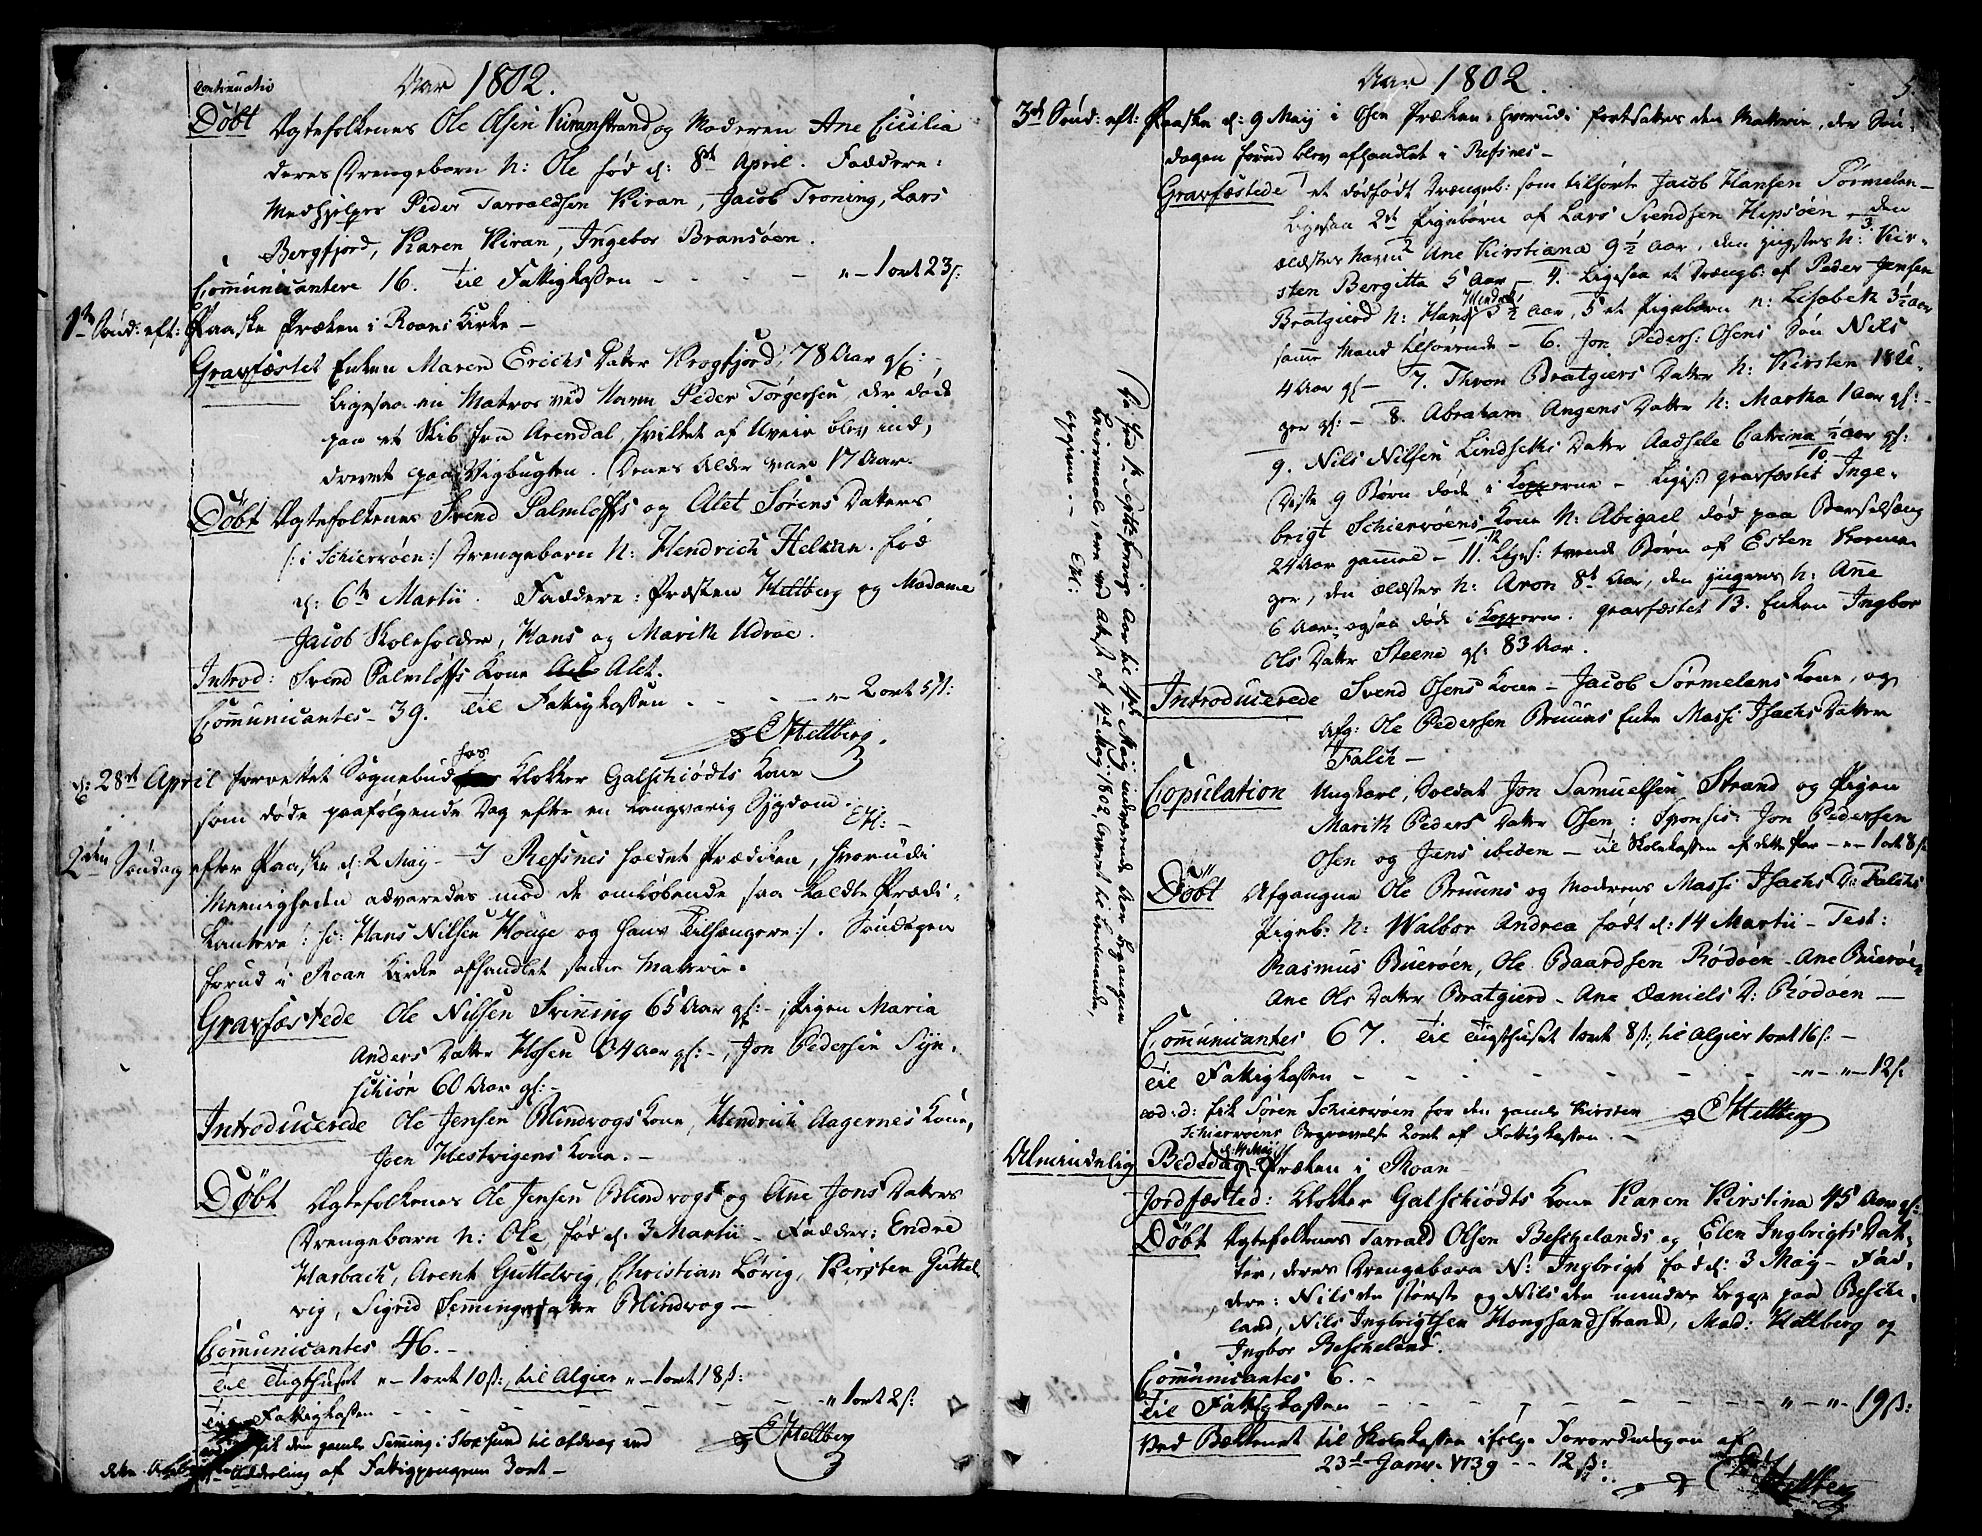 continuatio Aar 1802.
Döbt Ægtefolkenes Ole Olsen Kiranstrand og Moderen Ane Cicilia
deres Drengebarn N: Ole fød d: 8de April. Faddere:
Medhjelper Peder Tarraldsen Kiran, Jacob Troning, Lars
Bergfjord, Karen Kiran, Ingebor Bransöen.
Communicantere 16. Til Fattigkassen - - - - " - 1 ort 23 s:
1ste Sönd: eft: Paaske Præken i Roans Kirke -
Gravfæstet Enken Maren Erichs Datter Krogfjord, 78 Aar gl: -
Ligesaa en Matros ved Navn Peder Törgersen, der døde
paa et Skib fra Arendal, hvilket af Uveir blev ind,
drevet paa Vigbugten. Denes Alder var 17 Aar.
Döbt Ægtefolkenes Svend Palmloffs og Alet Sörens Datters
/: i Schierröen :/ Drengebarn N: Hendrich Helkan. fød
d: 6te Martii. Faddere: Præsten Hellberg og Madame
Jacob Skoleholder, Hans og Marith Udroe.
Introd: Svend Palmloffs Kone Alet.
Communicantes - 39. Til Fattigkassen - - - " - 2 ort 5 s:
EHellberg.
d: 28de April forrettet Sognebud hos Klokker Galschiödts Kone
som døde paafölgende Dag efter en langvarig Sygdom.
EH: -
2den Söndag efter Paaske d: 2 Maij - I Refsnes holdet Prædiken, hvorudi
Menigheden advaredes mod de omløbende saa kaldte Prædi-
kantere /: sc: Hans Nilsen Houge og hans Tilhængere :/. Søndagen
forud i Roan Kirke afhandlet samme Materie.
Gravfæstede Ole Nilsen Svinning 65 Aar gl: - Pigen Maria
Anders Datter Hofsen 34 Aar gl: -, Jon Pedersen Syn-
schiör 60 Aar gl: -
Introducerede Ole Jensen Blindvogs Kone, Hendrich Aagernes Kone,
Joen Hestvigens Kone. -
Döbt Ægtefolkenes Ole Jensen Blindvogs og Ane Jons Datters
Drengebarn N: Ole fød d: 3 Martii - Faddere: Endre
Harbach, Arent Guttelvig, Christian Lövig, Kirsten Guttel-
vig, Sigrid Semmingsdatter Blindvog -
Communicantes 46. -
Til Tugthuset " - 1 ort 10 s:, til Algier " - 1 ort 18 s:
Til Fattigkassen - - - - - - " 1 ort 2 s:
fik den gamle Semming i Stoksund til afdrag ved EHellberg
Uddeling af Fattigpengene 3 ort -
Aar 1802. 5
3de Sönd: eft: Paaske d: 9 Maij i Osen Præken, hvorudi fortsattes den Materie, der Søn-
dagen forud blev afhandlet i Refsnes -
Gravfæstede 1 et dødfødt Drengeb: som tilhørte Jacob Hansen Sörmelan -
Ligesaa 2de Pigebörn af Lars Svendsen Hepsöen - den
ældstes Navn 2 Ane Kirstiana 9½ Aar, den yngstes N: 3 Kir-
sten Bergitta 5 Aar - 4. Ligesaa et Drengb: af Peder Jensen
Bratgierd N: Hans 5½ Aar, 5 et Pigebarn N: Lisabeth 3½ Aar
samme Mand tilhørende - 6. Jon Peders: Osens Søn Nils
4 Aar gl - 7. Thron Bratgiers Datter N: Kirsten 18 U-
ger gl: - 8. Abraham Angens Datter N: Martha 1 Aar gl: -
9. Nils Nilsen Lindseths Datter Aadsele Catrina ½ Aar gl:
Disse 9 Børn døde i Kopperne - Ligesaa gravfæstet 10 Inge-
brigt Schierröens Kone N: Abigael død paa Barselsæng
24 Aar gammel - 11. 12 Liges: tvende Børn af Esten Korsen-
ger, den ældstes N: Aron 8te Aar, den yngres N: Ane
6 Aar, ogsaa døde i Kopperne. gravfæstet 13. Enken Ingbor
Ols Datter Steene gl: 83 Aar.
Introducerede Svend Osens Kone - Jacob Sörmelans Kone, og
afg: Ole Pedersen Bruuns Enke Massi Isachs Datter
Falch -
Copulation Ungkarl, Soldat Jon Samuelsen Strand og Pigen
Marith Peders Datter Osen: Sponsi: Jon Pedersen
Osen og Jens ibidem - Til Skolekassen af dette Par - " - 1 ort 8 s:
Döbt Afgangne Ole Bruuns og Moderens Massi Isachs D: Falchs
Pigeb: N: Walbor Andrea født d: 14 Martii - Test:
Rasmus Bueröen, Ole Baardsen Rödöen - Ane Bueröe,
Ane Ols Datter Bratgierd - Ane Daniels D: Rödöen -
Communicantes 67. Til Tugthuset 1 ort 8 s:, til Algier 1 ort 16 s: -
Til Fattigkassen - - - - - - - " - " - 12 s:
eod: d: fik Sören Schierröen for den gamle Kirsten EHellberg
Schierröens Begravelse 2 ort af Fattigkassen. -
Almindelig Bededag /: d: 14 Maij :/ Præken i Roan -
Jordfæsted: Klokker Galschiödts Kone Karen Kirstina 45 Aar gl:
Döbt Ægtefolkenes Tarrald Olsen Beskelands og Elen Ingbrigts Dat-
ter, deres Drengebarn N: Ingbrigt fød d: 3 Maij - Fad-
dere: Nils den största og Nils den mindre begge paa Beske-
land, Nils Ingbrigtsen Hongsandstrand, Mad: Hellberg og
Ingbor Beskeland.
Communicantes 6. -
Til Fattigkassen - - - - - - " - " - 19 s:
Ved Bækkenet til Skolekassen ifølge Forordningen af
23de Janv. 1739 - - 12 s:
EHellberg